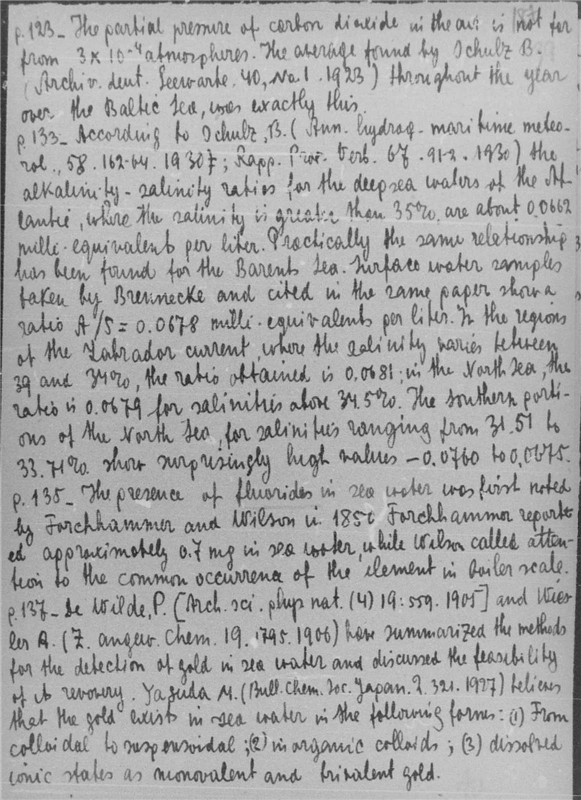 p.123_ The partial pressure of carbon dioxide in the air is not far
from 3 x 10-4 atmospheres. The average found by Schulz B.
(Archiv. deut. Seewarte. 40, No.1. 1923) throughout the year
over the Baltic Sea, was exactly this.
p.133_ According to Schulz, B. (Ann. hydrog. maritime meteo-
rol., 58. 162-64. 1930; Rapp. Proc. Verb. 67. 91-2. 1930) the
alkalinity-salinity ratios for the deepsea waters of the At-
lantic, where the salinity is greater than 35%o, are about 0.0662
milli-equivalents per liter. Practically the same relationship
has been found for the Barents Sea. Surface water samples
taken by Brennecke and cited in the same paper show a
ratio A/S = 0.0678 milli-equivalents per liter. In the regions
of the Labrador current, where the salinity varies between
and 34%o, the ratio obtained is 0.0681; in the North Sea, the
ratio is 0.0679 for salinities above 34.5%o. The southern porti-
ons of the North Sea, for salinities ranging from 31.51 to
33.71%o show surprisingly high values - 0.0760 to 0.0675.
p.135_ The presence of fluorides in sea water was first noted
by Forchhammer and Wilson in 1850 Forchhammer report-
ed approximately 0.7 mg in sea water, while Wilson called atten-
tion to the common occurrence of the element in boiler scale.
p.137_ De Wilde, P. [Arch. sci. phys nat. (4) 19:559. 1905] and Wies-
ler A. (Z. angew. Chem. 19. 1795. 1906) have summarized the methods
for the detection of gold in sea water and discussed the feasibility
of its revovery. Yasuda M. (Bull. Chem. Soc. Japan. 2. 321. 1927) believes
that the gold exists in sea water in the following forms: (1) From
colloidal to suspensoidal; (2) in organic colloids; (3) dissolved
ionic states as monovalent and trivalent gold.